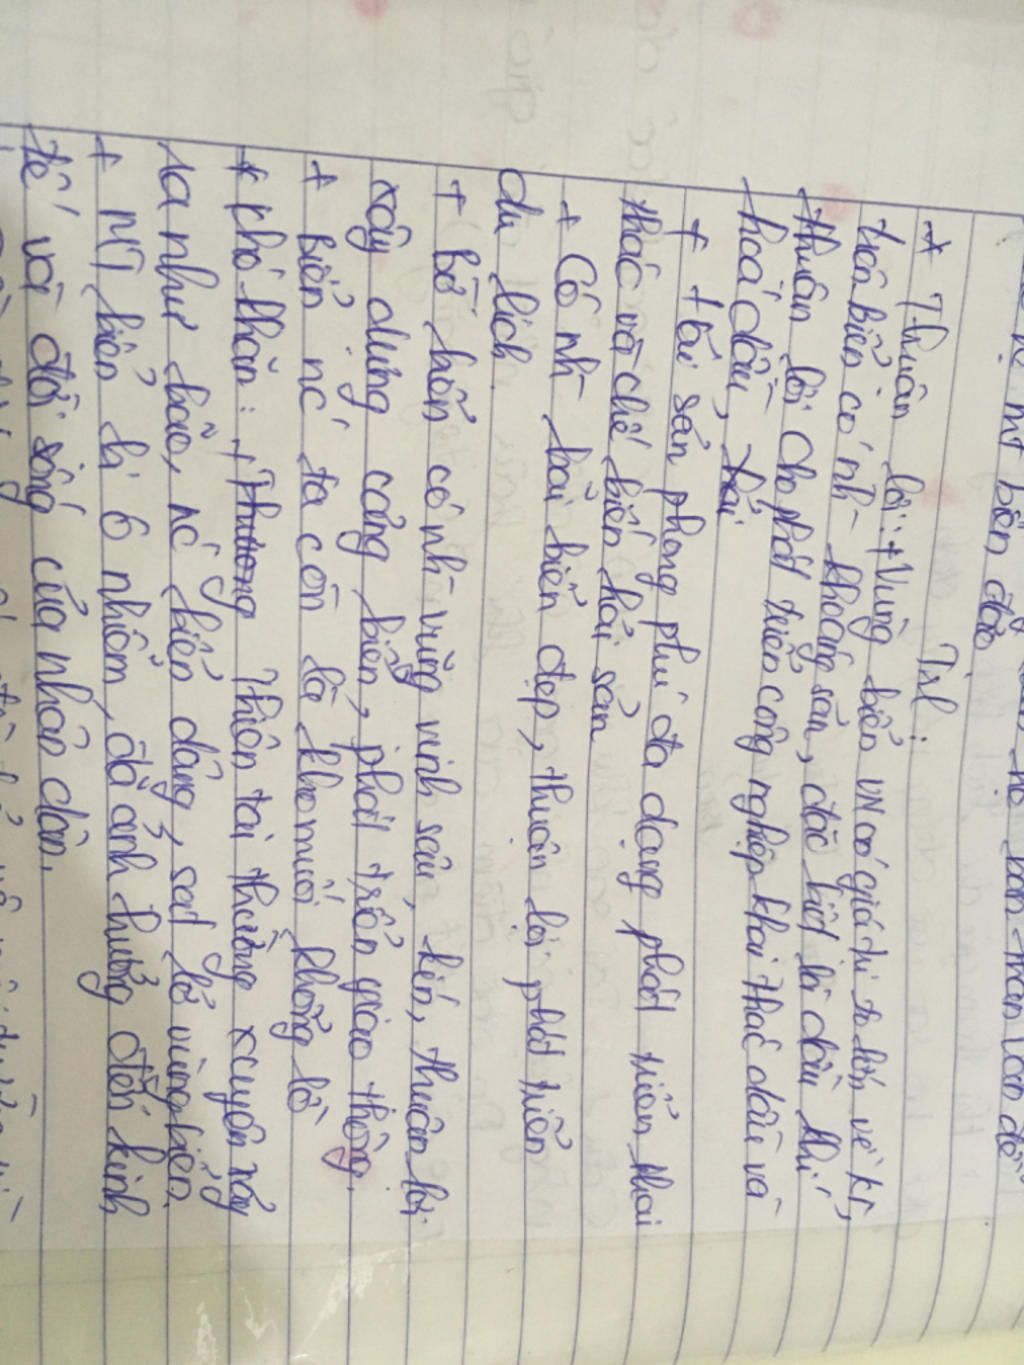 mt biển đảo
Trl:
* Thuận lợi: + Vùng biển VN có giá trị to lớn về kt,
trên biển có nh- khoáng sản, đặc biệt là dầu khí
thuận lợi cho phát triển công nghiệp khai thác dầu và
hoá dầu,
+ Hải sản phong phú đa dạng phát triển khai
thác và chế biến hải sản
+ Có nh- bãi biển đẹp, thuận lợi phát triển
du lịch.
+ Bờ biển có nh- vũng vịnh sâu, kín, thuận lợi
xây dựng cảng biển, phát triển giao thông.
+ Biển nc' ta còn là kho muối khổng lồ
* khó khăn: + Thương thiên tai thường xuyên xảy
ra như bão, nc' biển dâng, sạt lở vùng biển.
+ MT biển bị ô nhiễm, đã ảnh hưởng đến kinh
tế và đời sống của nhân dân.